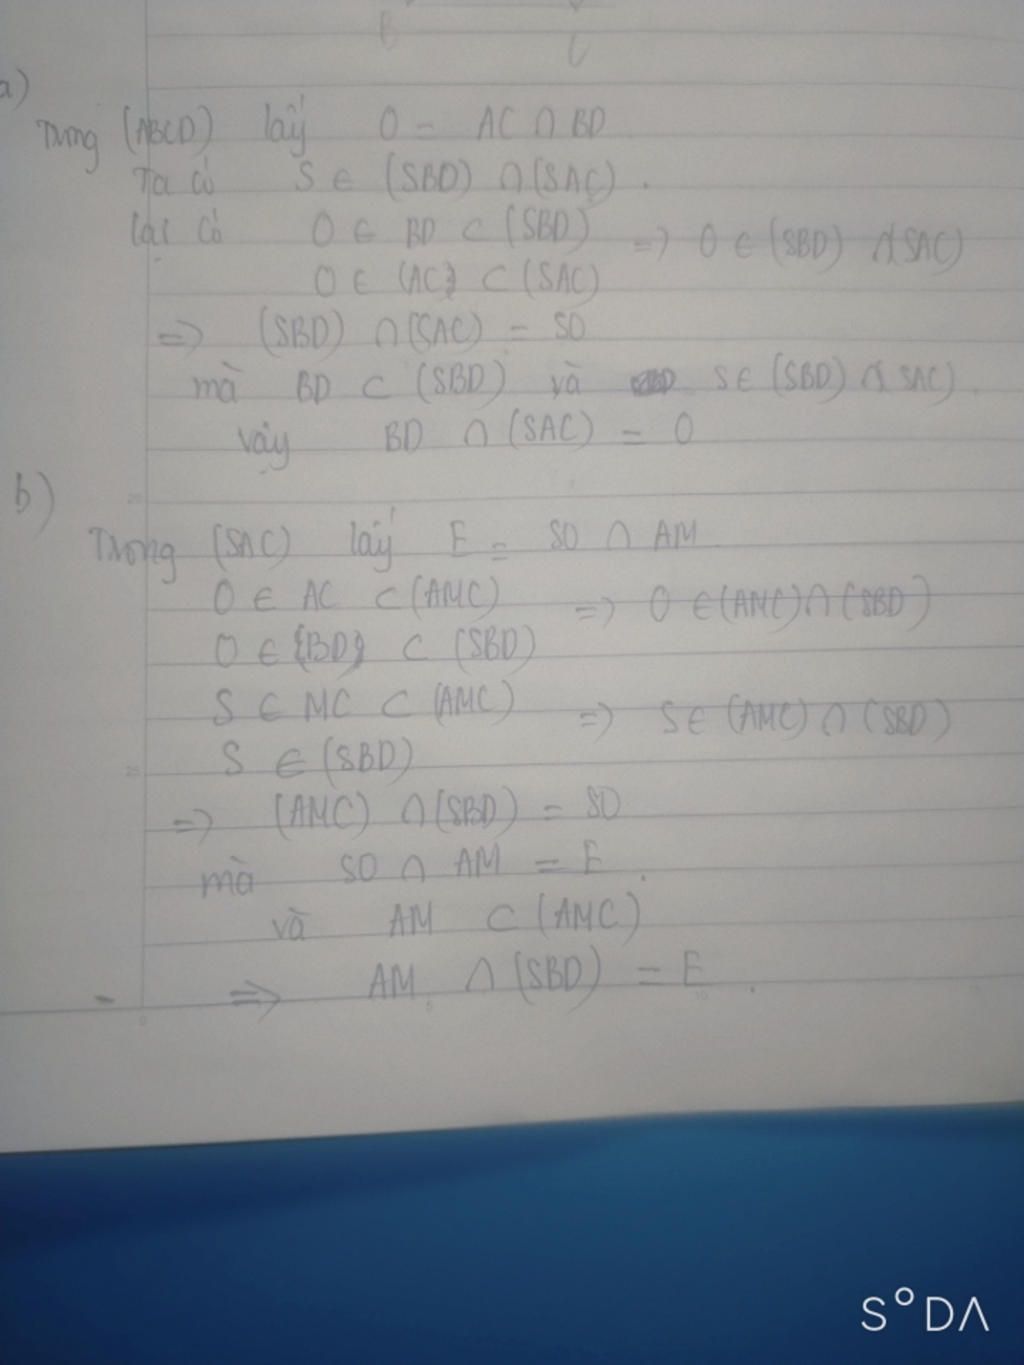 a)
Trong (ABCD) lấy O = AC ∩ BD
Ta có S ∈ (SBD) ∩ (SAC).
lại có O ∈ BD ⊂ (SBD) => O ∈ (SBD) ∩ (SAC)
O ∈ {AC} ⊂ (SAC)
=> (SBD) ∩ (SAC) = SO
mà BD ⊂ (SBD) và S ∈ (SBD) ∩ (SAC).
vậy BD ∩ (SAC) = O
b)
Trong (SAC) lấy E = SO ∩ AM
O ∈ AC ⊂ (AMC) => O ∈ (AMC) ∩ (SBD)
O ∈ {BD} ⊂ (SBD)
S ⊂ MC ⊂ (AMC) => S ∈ (AMC) ∩ (SBD)
S ∈ (SBD)
=> (AMC) ∩ (SBD) = SO
mà SO ∩ AM = E.
và AM ⊂ (AMC)
=> AM ∩ (SBD) = E.
SODA